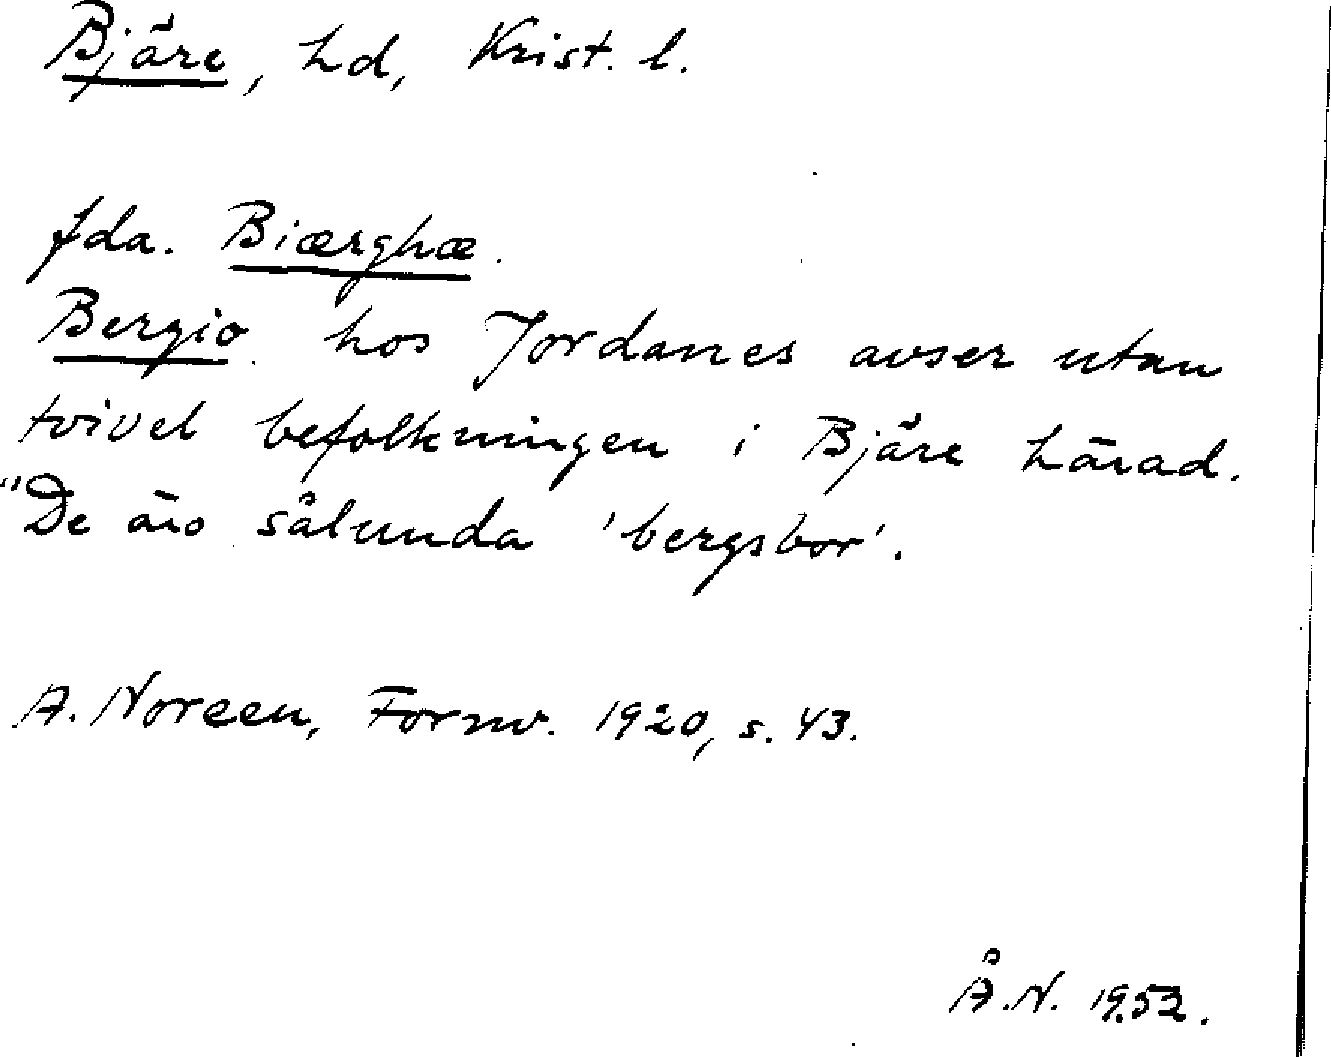 Bjäre, hd, Krist. l.
fda. Biærghæ.
Bergio hos Jordanes avser utan
tvivel befolkningen i Bjäre härad.
"De äro sålunda 'bergsbor'.
A. Noreen, Fornv. 1920, s. 43.
Å.N. 1952.